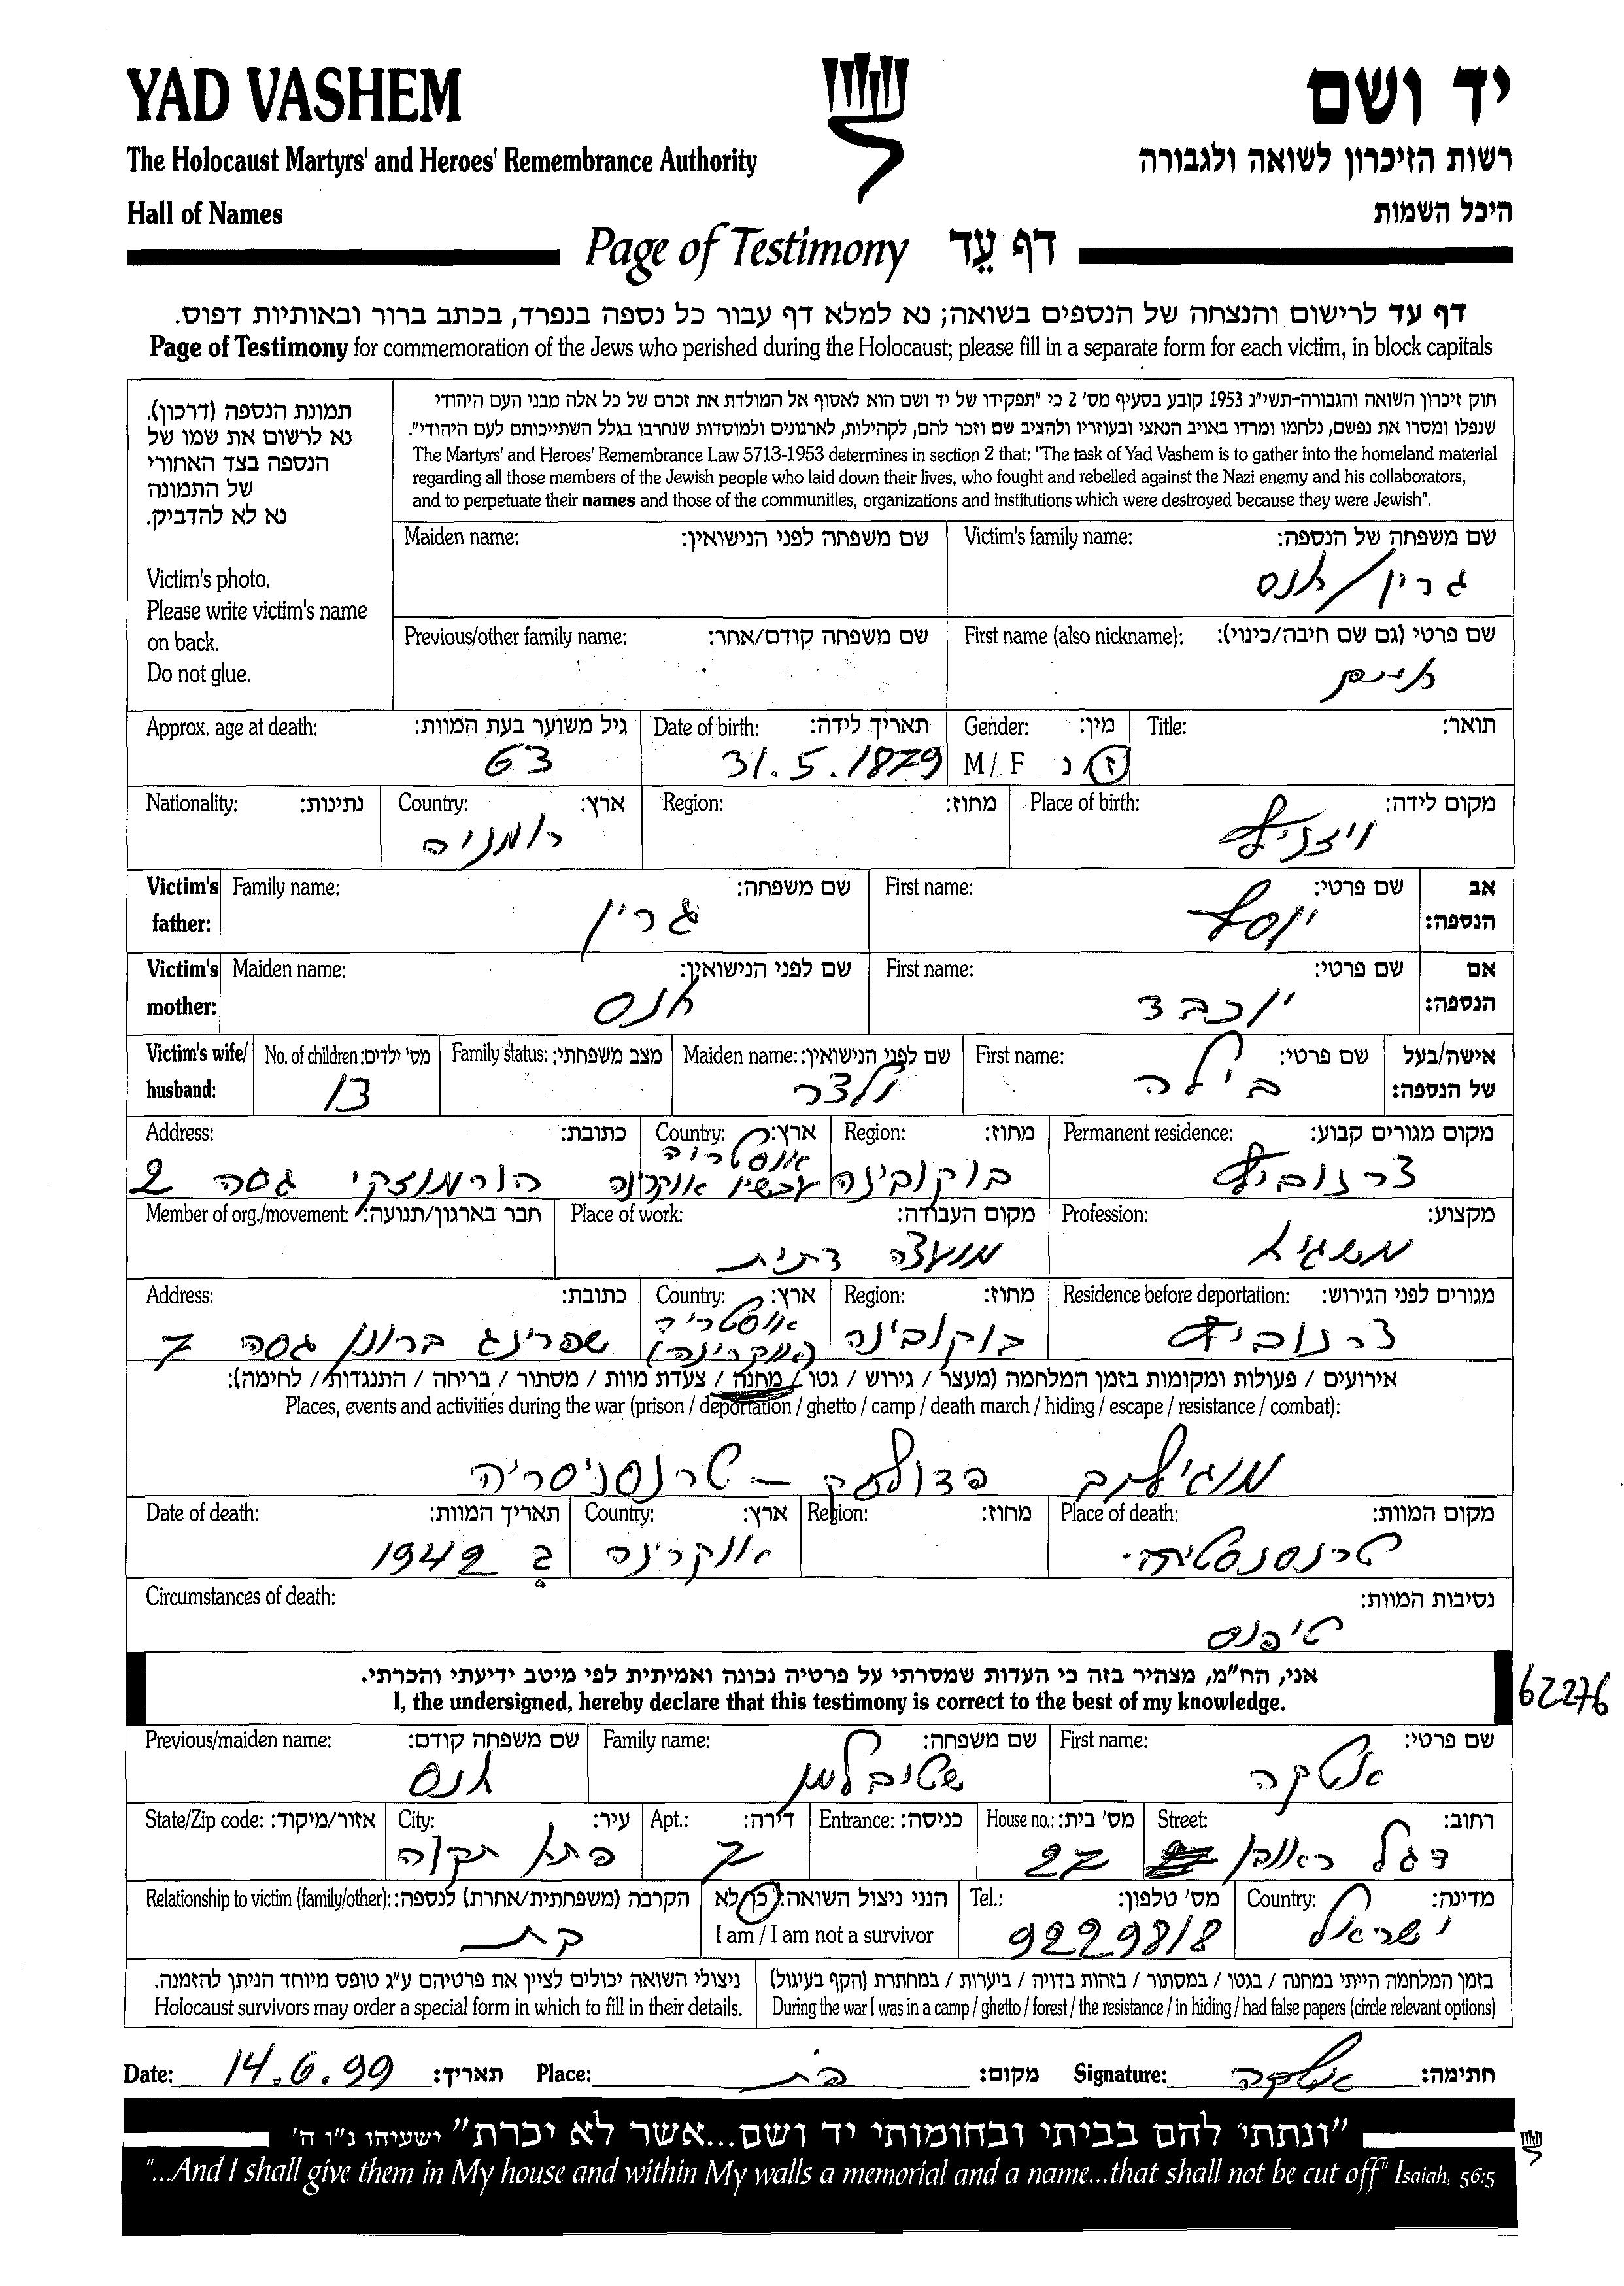 YAD VASHEM
יד ושם
The Holocaust Martyrs' and Heroes' Remembrance Authority
רשות הזיכרון לשואה ולגבורה
Hall of Names
היכל השמות
Page of Testimony דף עֵד
דף עד לרישום והנצחה של הנספים בשואה; נא למלא דף עבור כל נספה בנפרד, בכתב ברור ובאותיות דפוס.
Page of Testimony for commemoration of the Jews who perished during the Holocaust; please fill in a separate form for each victim, in block capitals
תמונת הנספה (דרכון).
נא לרשום את שמו של
הנספה בצד האחורי
של התמונה
נא לא להדביק.
Victim's photo.
Please write victim's name
on back.
Do not glue.
חוק זיכרון השואה והגבורה-תשי"ג 1953 קובע בסעיף מס' 2 כי "תפקידו של יד ושם הוא לאסוף אל המולדת את זכרם של כל אלה מבני העם היהודי
שנפלו ומסרו את נפשם, נלחמו ומרדו באויב הנאצי ובעוזריו ולהציב שם וזכר להם, לקהילות, לארגונים ולמוסדות שנחרבו בגלל השתייכותם לעם היהודי".
The Martyrs' and Heroes' Remembrance Law 5713-1953 determines in section 2 that: "The task of Yad Vashem is to gather into the homeland material
regarding all those members of the Jewish people who laid down their lives, who fought and rebelled against the Nazi enemy and his collaborators,
and to perpetuate their names and those of the communities, organizations and institutions which were destroyed because they were Jewish".
Maiden name: שם משפחה לפני הנישואין: Victim's family name: שם משפחה של הנספה:
גרין/אנס
Previous/other family name: שם משפחה קודם/אחר: First name (also nickname): שם פרטי (גם שם חיבה/כינוי):
Approx. age at death: גיל משוער בעת המוות: Date of birth: תאריך לידה: Gender: מין: Title: תואר:
63 31.5.1879 M/F ז/נ
Nationality: נתינות: Country: ארץ: Region: מחוז: Place of birth: מקום לידה:
רומניה ויזניץ
Victim's father: Family name: שם משפחה: First name: שם פרטי: אב הנספה:
גרין יוסף
Victim's mother: Maiden name: שם לפני הנישואין: First name: שם פרטי: אם הנספה:
אנס יוכבד
Victim's wife/ husband: No. of children: מס' ילדים: Family status: מצב משפחתי: Maiden name: שם לפני הנישואין: First name: שם פרטי: אישה/בעל של הנספה:
13 ולצר בילה
Address: כתובת: Country: ארץ: Region: מחוז: Permanent residence: מקום מגורים קבוע:
הורמוזקי גסה 2 אוסטריה עכשיו אוקרינה בוקובינה צרנוביץ
Member of org./movement: חבר בארגון/תנועה: Place of work: מקום העבודה: Profession: מקצוע:
מועצה דתית משגיח
Address: כתובת: Country: ארץ: Region: מחוז: Residence before deportation: מגורים לפני הגירוש:
שפרינג ברונן גסה 7 אוסטריה (אוקרינה) בוקובינה צרנוביץ
אירועים / פעולות ומקומות בזמן המלחמה (מעצר / גירוש / גטו / מחנה / צעדת מוות / מסתור / בריחה / התנגדות / לחימה):
Places, events and activities during the war (prison / deportation / ghetto / camp / death march / hiding / escape / resistance / combat):
מוגילוב פדולסק - טרנסניסריה
Date of death: תאריך המוות: Country: ארץ: Region: מחוז: Place of death: מקום המוות:
ב 1942 אוקרינה
Circumstances of death: נסיבות המוות:
טיפוס
אני, הח"מ, מצהיר בזה כי העדות שמסרתי על פרטיה נכונה ואמיתית לפי מיטב ידיעתי והכרתי.
I, the undersigned, hereby declare that this testimony is correct to the best of my knowledge.
62276
Previous/maiden name: שם משפחה קודם: Family name: שם משפחה: First name: שם פרטי:
אנס שטיבלמן אטקה
State/Zip code: אזור/מיקוד: City: עיר: Apt.: דירה: Entrance: כניסה: House no.: מס' בית: Street: רחוב:
פתח תקוה 7 27 דגל ראובן
Relationship to victim (family/other): הקרבה (משפחתית/אחרת) לנספה: הנני ניצול השואה: כן/לא Tel.: מס' טלפון: Country: מדינה:
בת I am / I am not a survivor 9229818 ישראל
ניצולי השואה יכולים לציין את פרטיהם ע"ג טופס מיוחד הניתן להזמנה.
Holocaust survivors may order a special form in which to fill in their details.
בזמן המלחמה הייתי במחנה / בגטו / במסתור / בזהות בדויה / ביערות / במחתרת (הקף בעיגול)
During the war I was in a camp / ghetto / forest / the resistance / in hiding / had false papers (circle relevant options)
Date: 14.6.99 תאריך: Place: פ"ת מקום: Signature: אטקה חתימה:
"ונתתי להם בביתי ובחומותי יד ושם...אשר לא יכרת" ישעיהו נ"ו ה'
"...And I shall give them in My house and within My walls a memorial and a name...that shall not be cut off" Isaiah, 56:5